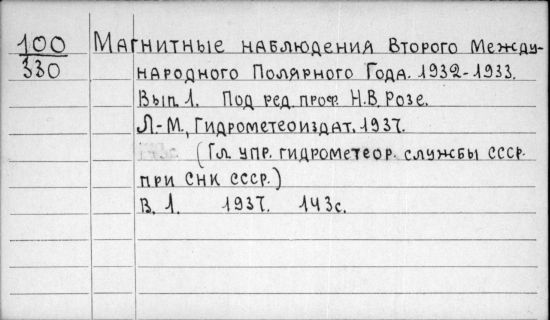 100 Магнитные наблюдения Второго Между-
330 народного Полярного Года. 1932-1933.
Вып. 1. Под ред. проф. Н.В. Розе.
Л.-М., Гидрометеоиздат. 1937.
(Гл. упр. гидрометеор. службы СССР
при СНК СССР.)
В. 1. 1937. 143с.